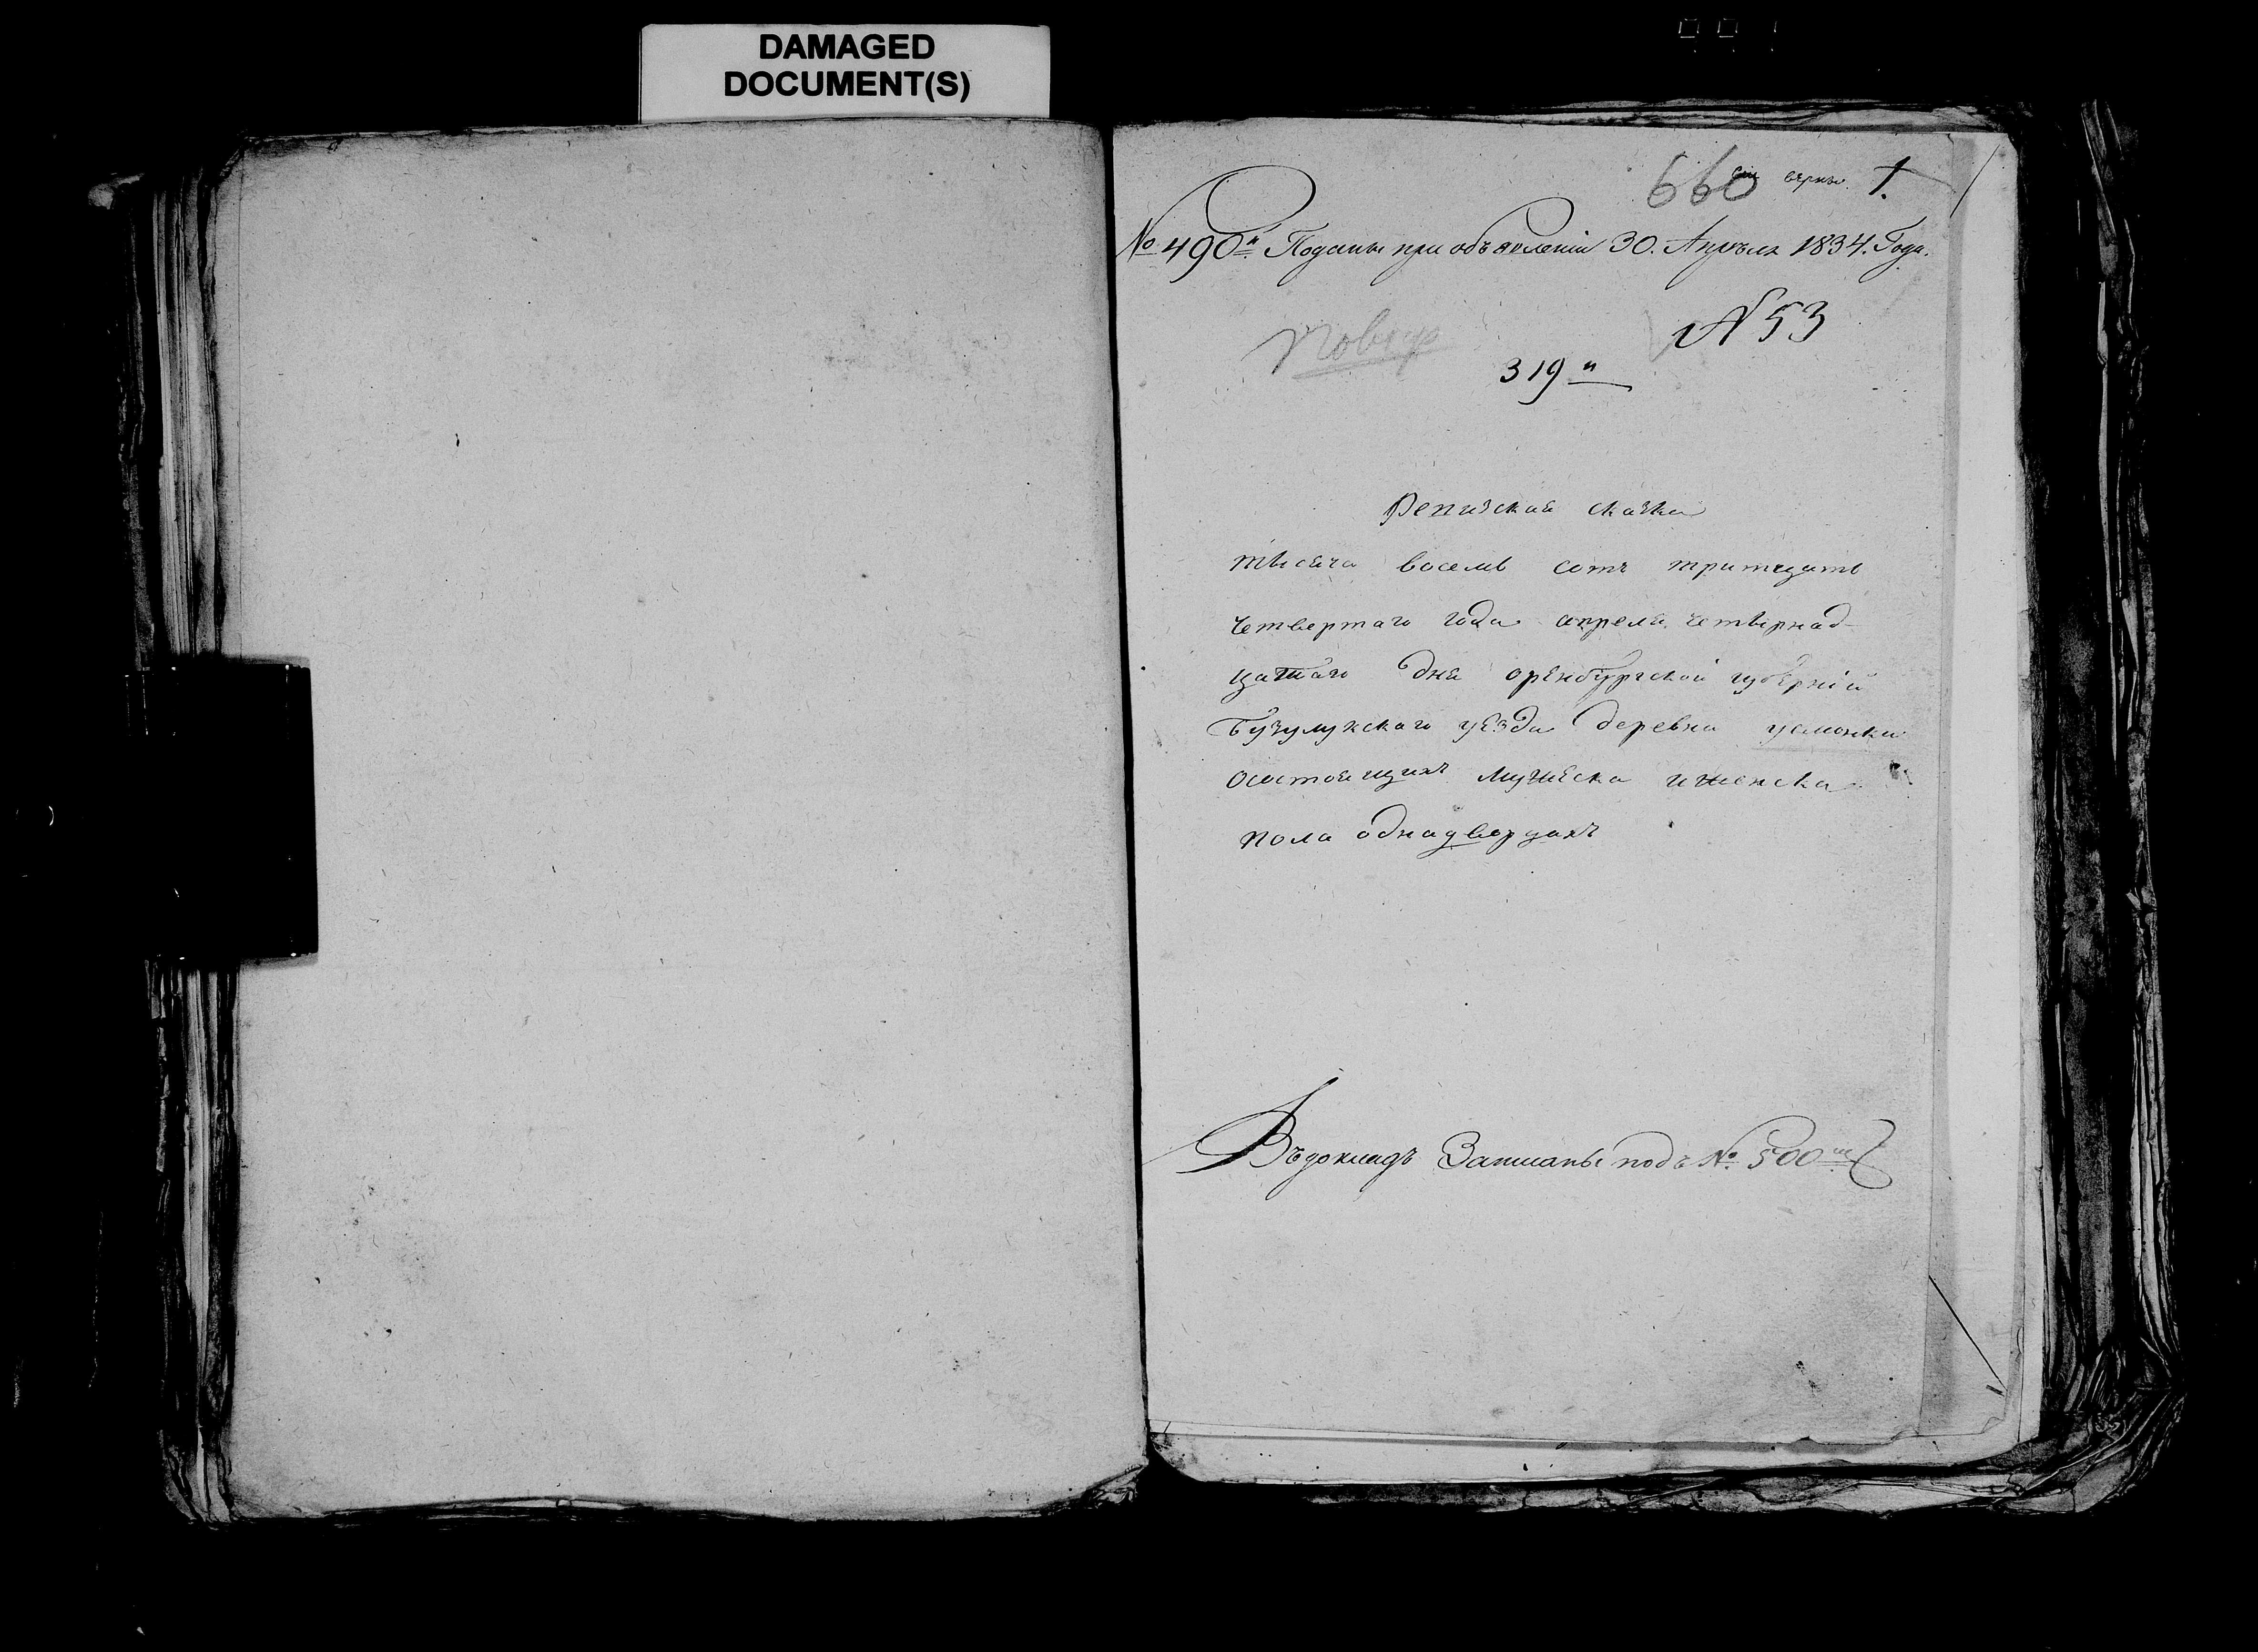 DAMAGED
DOCUMENT(S)
660 верны 1.
№ 490й Поданы при объявленіи 30. Апрѣля 1834. Года.
№ 53
319й
Ревизская сказка
тысяча восемь сотъ тритцать
четвертаго года апреля четырнад-
цатаго дня оренбургской губерніи
бузулукского уезда деревни усманки
осостоящихъ мужеска иженска
пола однадворцахъ
Въдокладъ Записаны подъ № 500мъ